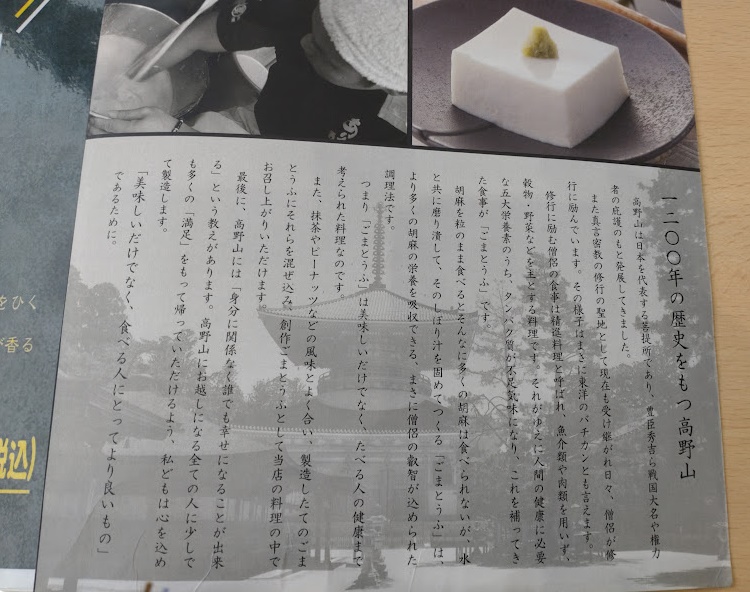 一二〇〇年の歴史をもつ高野山
高野山は日本を代表する菩提所であり、豊臣秀吉ら戦国大名や権力
者の庇護のもと発展してきました。
また真言密教の修行の聖地として現在も受け継がれ日々、僧侶が修
行に励んでいます。その様子はまさに東洋のバチカンとも言えます。
修行に励む僧侶の食事は精進料理と呼ばれ、魚介類や肉類を用いず、
穀物・野菜などを主とする料理です。それがゆえに人間の健康に必要
な五大栄養素のうち、タンパク質が不足気味になり、これを補ってき
た食事が「ごまとうふ」です。
胡麻を粒のまま食べるとそんなに多くの胡麻は食べられないが、水
と共に磨り潰して、そのしぼり汁を固めてつくる「ごまとうふ」は、
より多くの胡麻の栄養を吸収できる、まさに僧侶の叡智が込められた
調理法です。
つまり「ごまとうふ」は美味しいだけでなく、たべる人の健康まで
考えられた料理なのです。
また、抹茶やピーナッツなどの風味とよく合い、製造したてのごま
とうふにそれらを混ぜ込み、創作ごまとうふとして当店の料理の中で
お召し上がりいただけます。
最後に、高野山には「身分に関係なく誰でも幸せになることが出来
る」という教えがあります。高野山にお越しになる全ての人に少しで
も多くの「満足」をもって帰っていただけるよう、私どもは心を込め
て製造します。
「美味しいだけでなく、食べる人にとってより良いもの」
であるために。
をひく
が香る
税込)